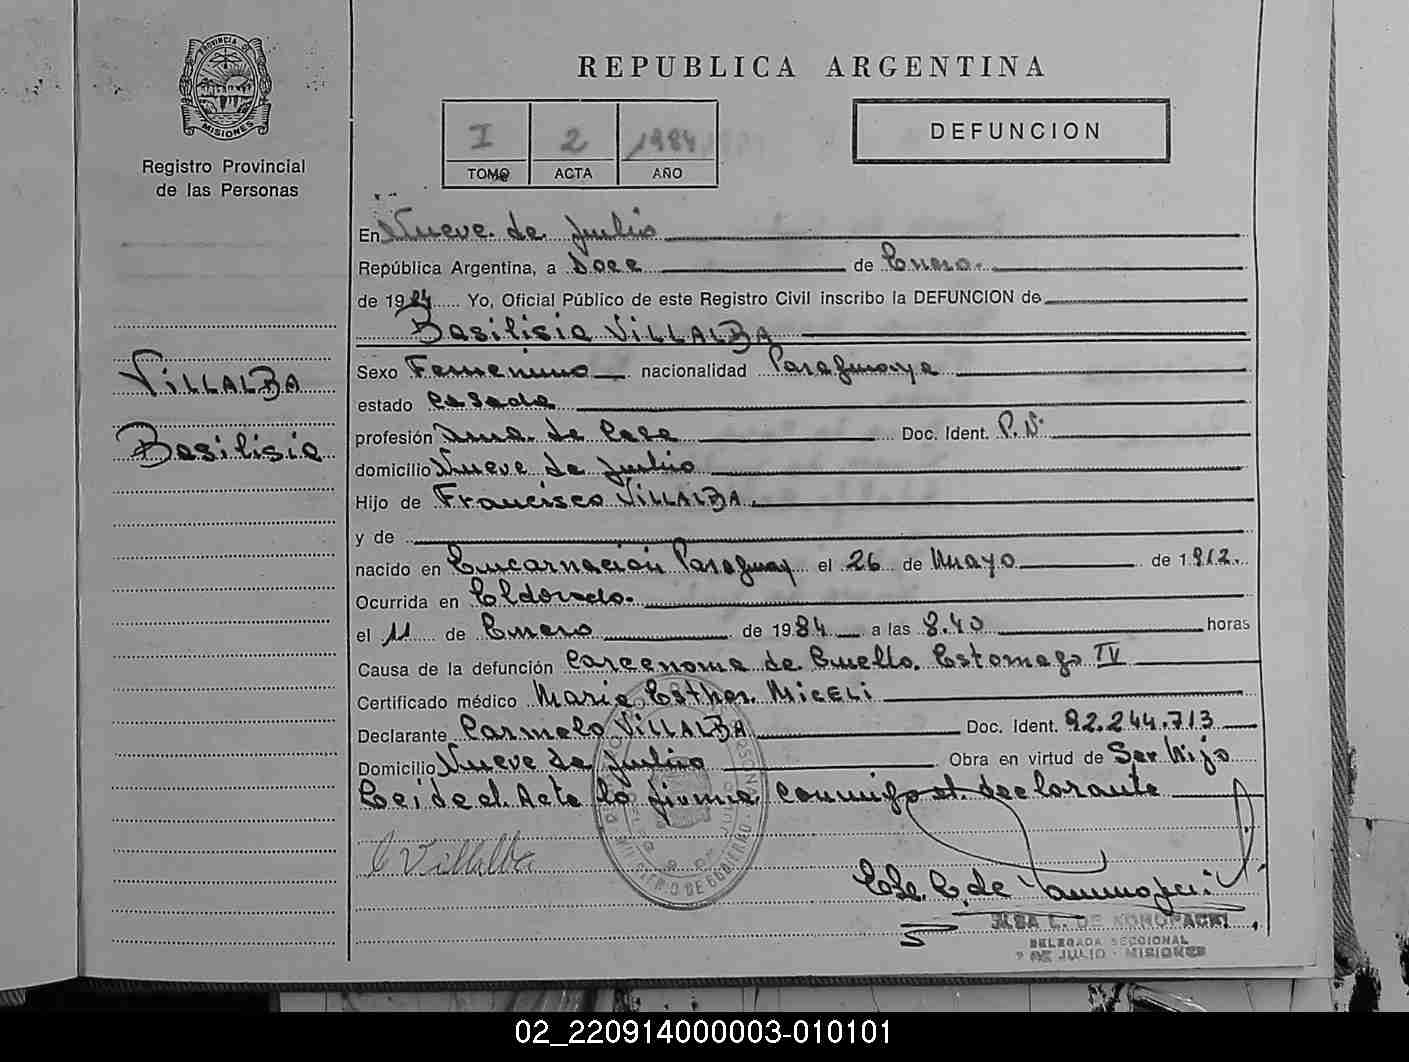 PROVINCIA DE
MISIONES
Registro Provincial
de las Personas
REPUBLICA ARGENTINA
I 2 1984
TOMO ACTA AÑO
DEFUNCION
En Nueve de Julio
República Argentina, a Doce de Enero.
de 1984 Yo, Oficial Público de este Registro Civil inscribo la DEFUNCION de
Basilisia VILLALBA
VILLALBA
Basilisia
Sexo Femenino nacionalidad Paraguaya
estado Casada
profesión Ama de Casa Doc. Ident. P.N.
domicilio Nueve de Julio
Hijo de Francisco VILLALBA.
y de
nacido en Encarnación Paraguay el 26 de Mayo de 1912.
Ocurrida en Eldorado.
el 11 de Enero de 1984 a las 8.40 horas
Causa de la defunción Carcenoma de Cuello. Estomago IV
Certificado médico Maria Esther MiCELi
Declarante Carmelo VILLALBA Doc. Ident. 92.244.713
Domicilio Nueve de Julio Obra en virtud de Ser Hijo
Leida el Acta la firma conmigo el declarante
C Villalba
MINISTERIO DE GOBIERNO
ELSA L. DE KONOPACKI
DELEGADA SECCIONAL
9 DE JULIO - MISIONES
02_220914000003-010101